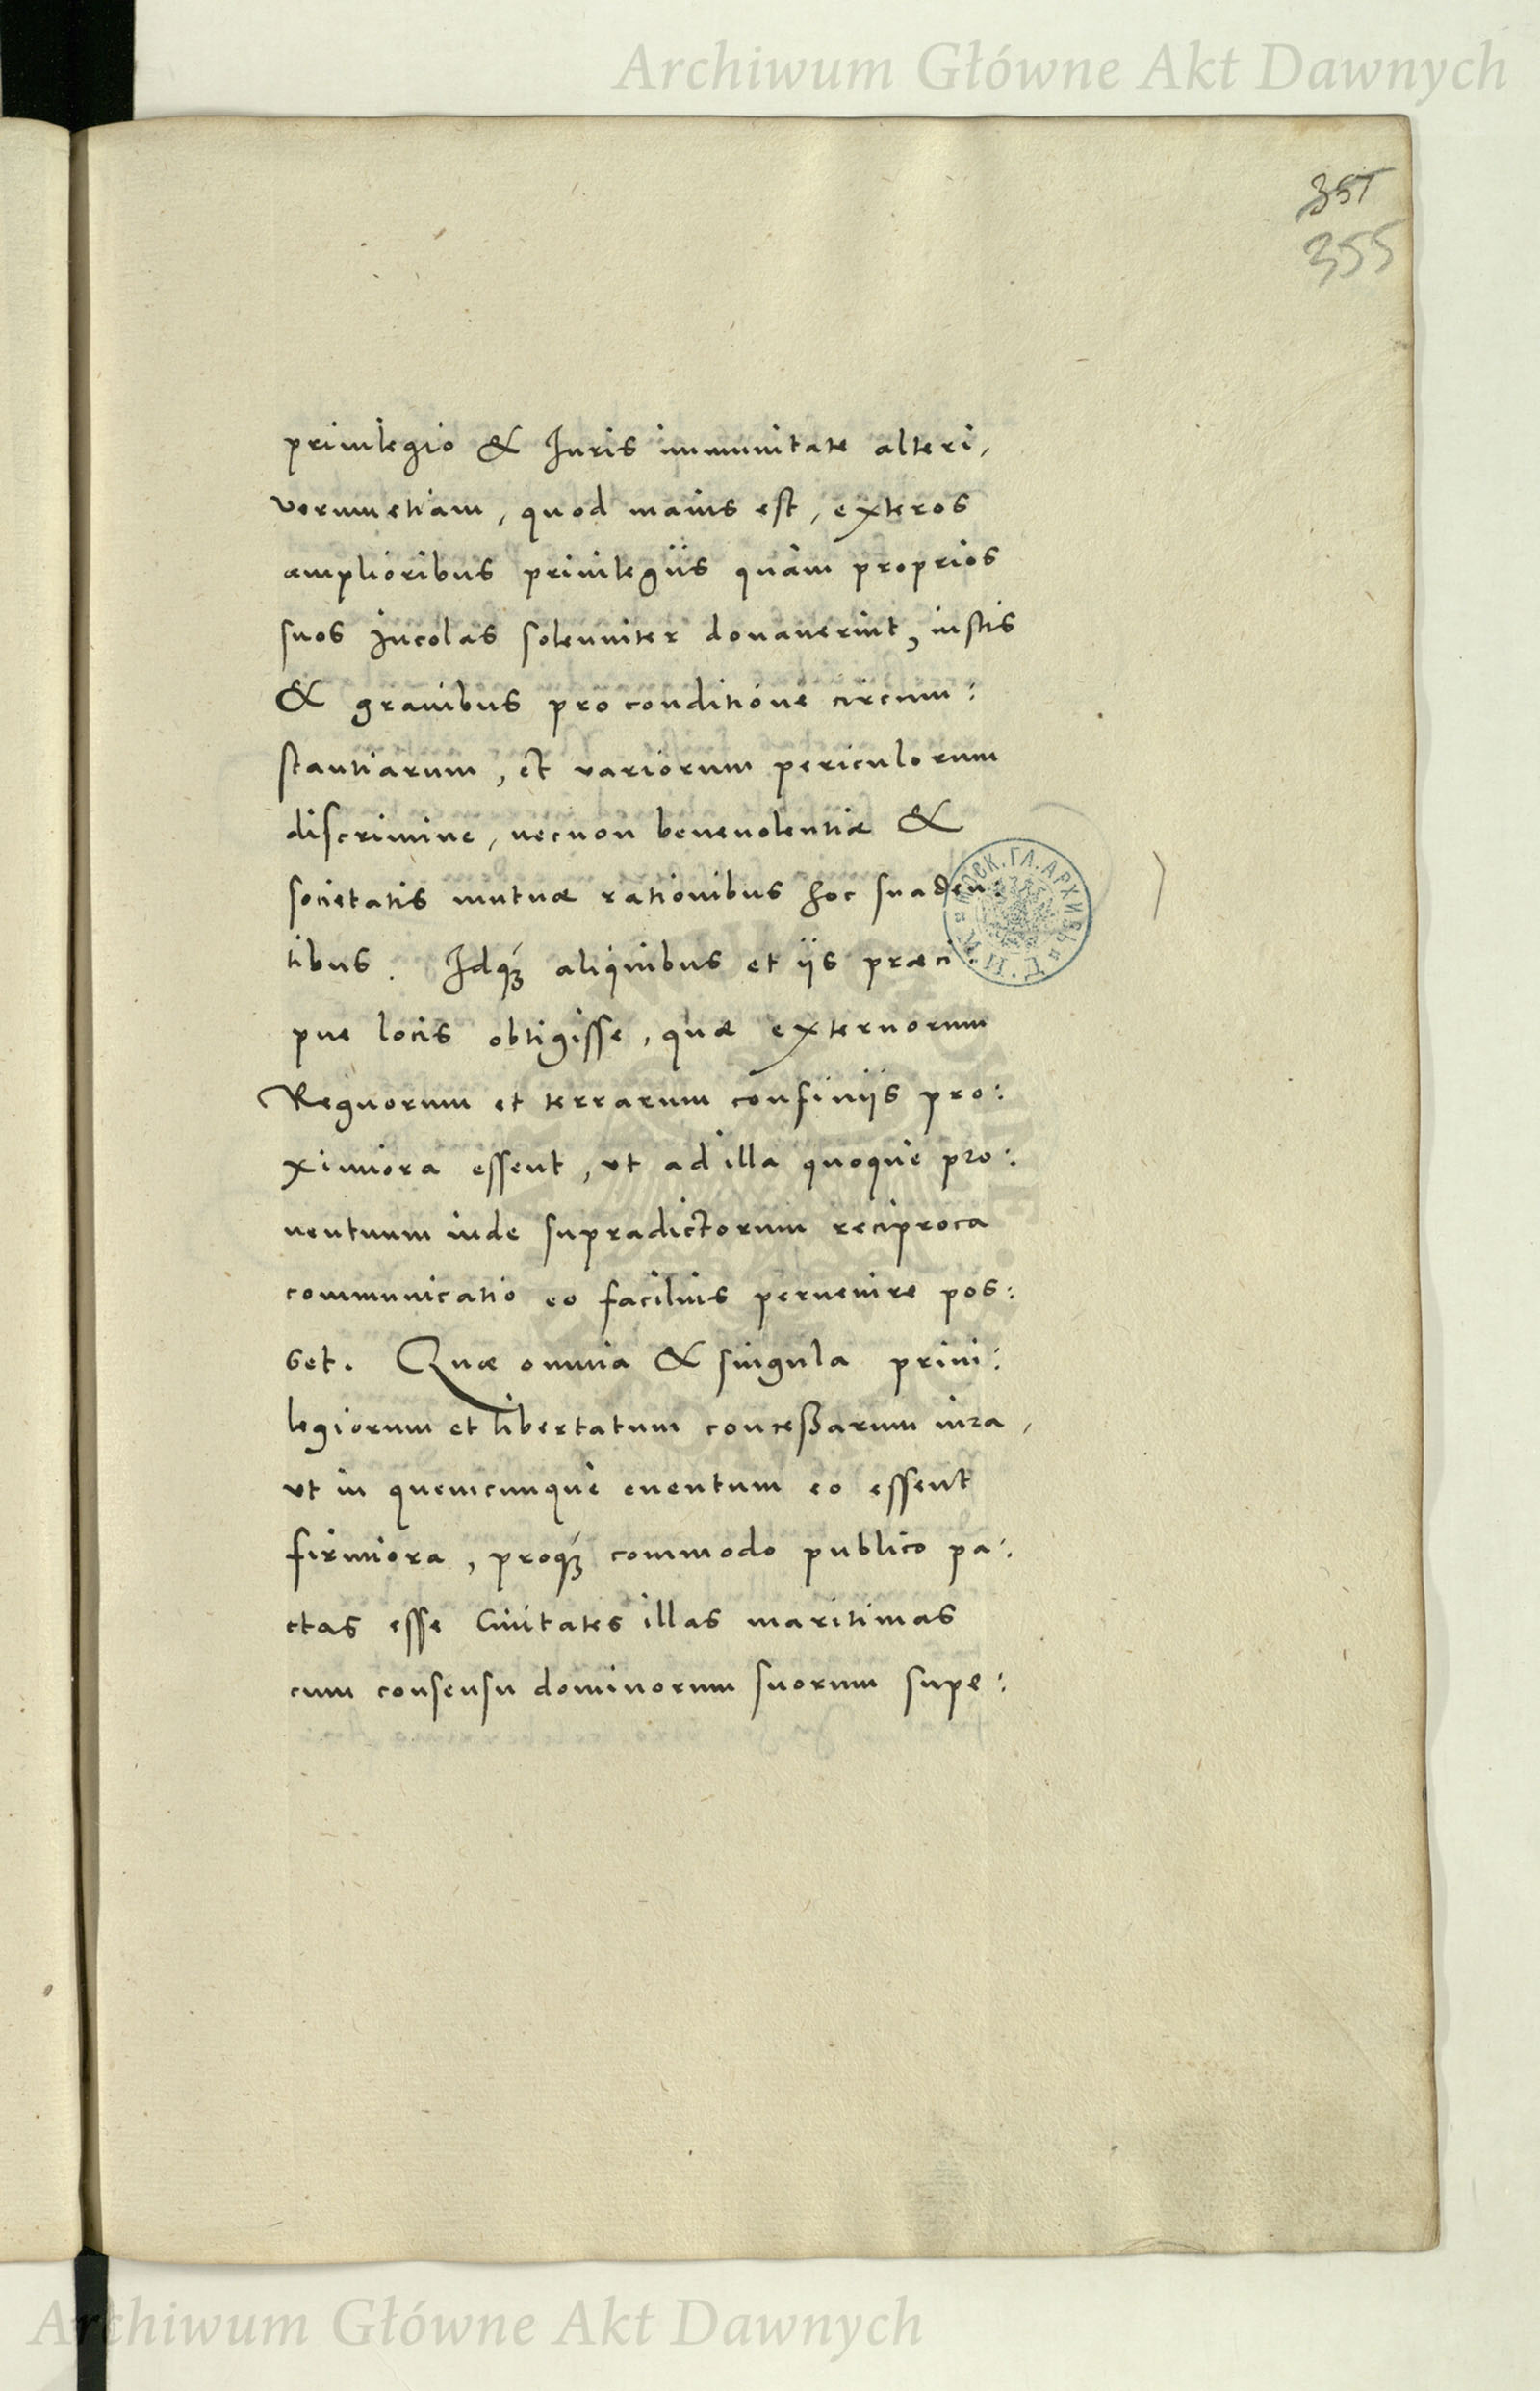 Archiwum Główne Akt Dawnych
351
355
priuilegio & Iuris immunitate alteri,
verumetiam, quod maius est, exteros
amplioribus priuilegiis quàm proprios
suos incolas solenniter donauerint, iustis
& grauibus pro conditione circum:
stantiarum, et variorum periculorum
discrimine, necnon beneuolentiæ &
societatis mutuæ rationibus hoc suaden:
tibus. Idq́ꝫ aliquibus et iis præci
pue locis obtigisse, quæ externorum
Regnorum et terrarum confiniis pro:
ximiora essent, vt ad illa quoque pro:
uentuum inde supradictorum reciproca
communicatio eo facilius peruenire pos:
set. Quæ omnia & singula priui:
legiorum et libertatum conceßarum iura,
vt in quemcunque euentum eo essent
firmiora, proq́ꝫ commodo publico pa:
ctas esse Ciuitates illas maritimas
cum consensu dominorum suorum supe:
МОСК. ГЛ. АРХИВЪ
М. И. Д.
Archiwum Główne Akt Dawnych